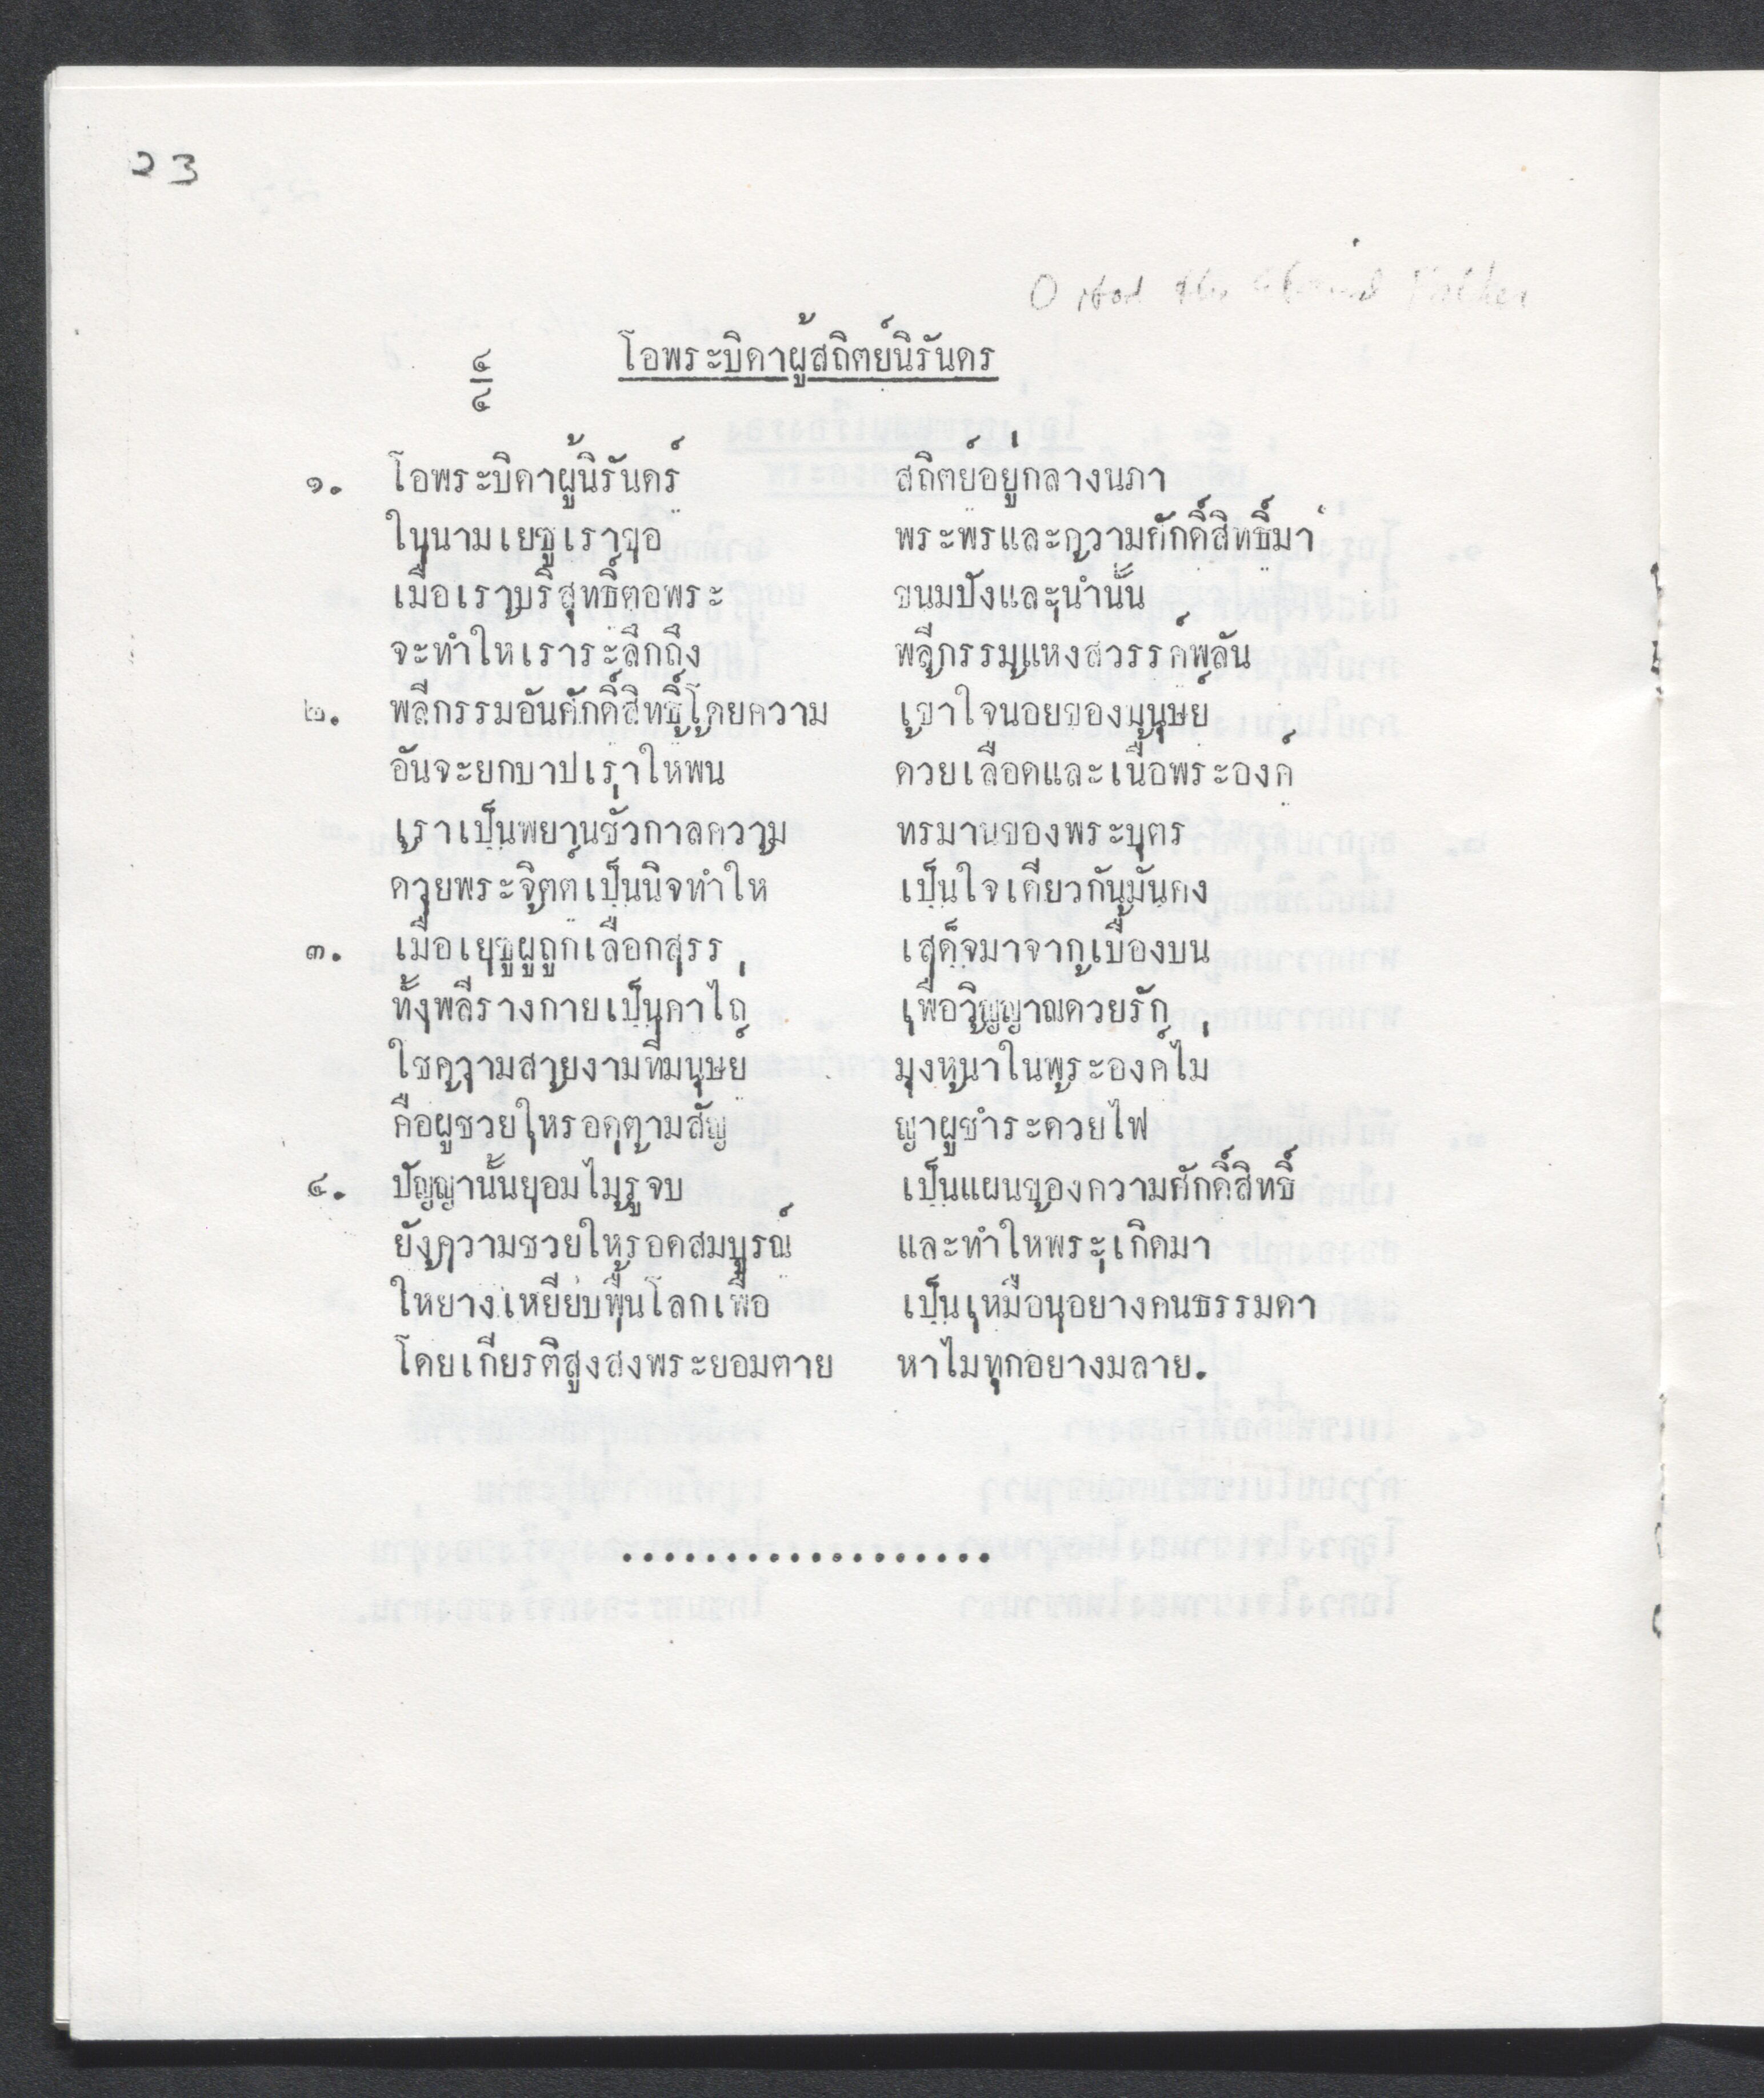 23
O God the Eternal Father
๔/๔ โอพระบิดาผู้สถิตย์นิรันดร
๑. โอพระบิดาผู้นิรันดร์ สถิตย์อยู่กลางนภา
ในนามเยซูเราขอ พระพรและความศักดิ์สิทธิ์มา
เมื่อเราบริสุทธิ์ต่อพระ ขนมปังและน้ำนั้น
จะทำให้เราระลึกถึง พลีกรรมแห่งสวรรค์พลัน
๒. พลีกรรมอันศักดิ์สิทธิ์โดยความ เข้าใจน้อยของมนุษย์
อันจะยกบาปเราให้พ้น ด้วยเลือดและเนื้อพระองค์
เราเป็นพยานชั่วกาลความ ทรมานของพระบุตร
ด้วยพระจิตต์เป็นนิจทำให้ เป็นใจเดียวกันมั่นคง
๓. เมื่อเยซูผู้ถูกเลือกสรร เสด็จมาจากเบื้องบน
ทั้งพลีร่างกายเป็นค่าไถ่ เพื่อวิญญาณด้วยรัก
ใช่ความสวยงามที่มนุษย์ มุ่งหน้าในพระองค์ไม่
คือผู้ช่วยให้รอดตามสัญ ญาผู้ชำระด้วยไฟ
๔. ปัญญานั้นย่อมไม่รู้จบ เป็นแผนของความศักดิ์สิทธิ์
ยังความช่วยให้รอดสมบูรณ์ และทำให้พระเกิดมา
ให้ย่างเหยียบพื้นโลกเพื่อ เป็นเหมือนอย่างคนธรรมดา
โดยเกียรติสูงส่งพระยอมตาย หาไม่ทุกอย่างมลาย.
...................